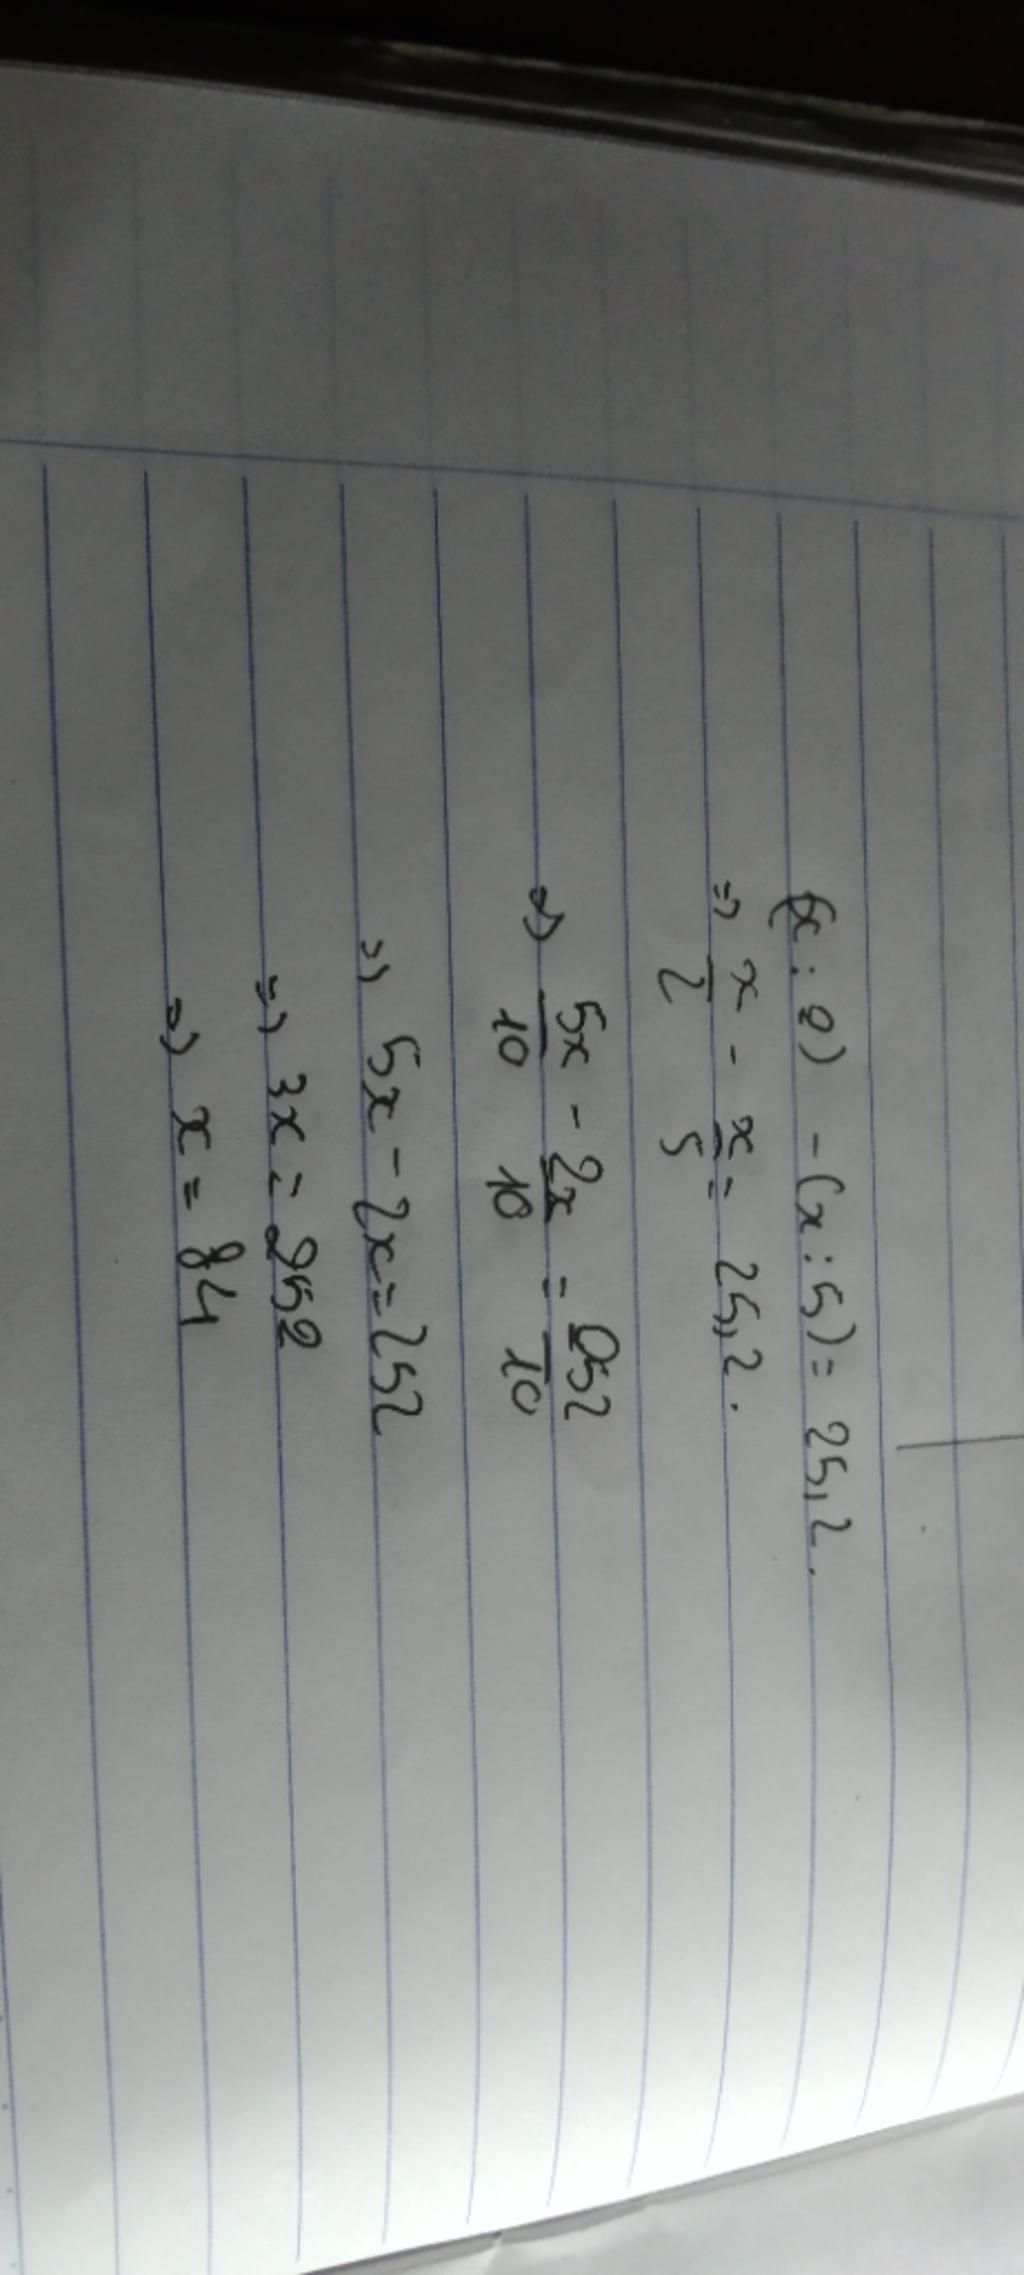 (x : 2) - (x : 5) = 25,2.
=> x/2 - x/5 = 25,2.
=> 5x/10 - 2x/10 = 252/10
=> 5x - 2x = 252
=> 3x = 252
=> x = 84